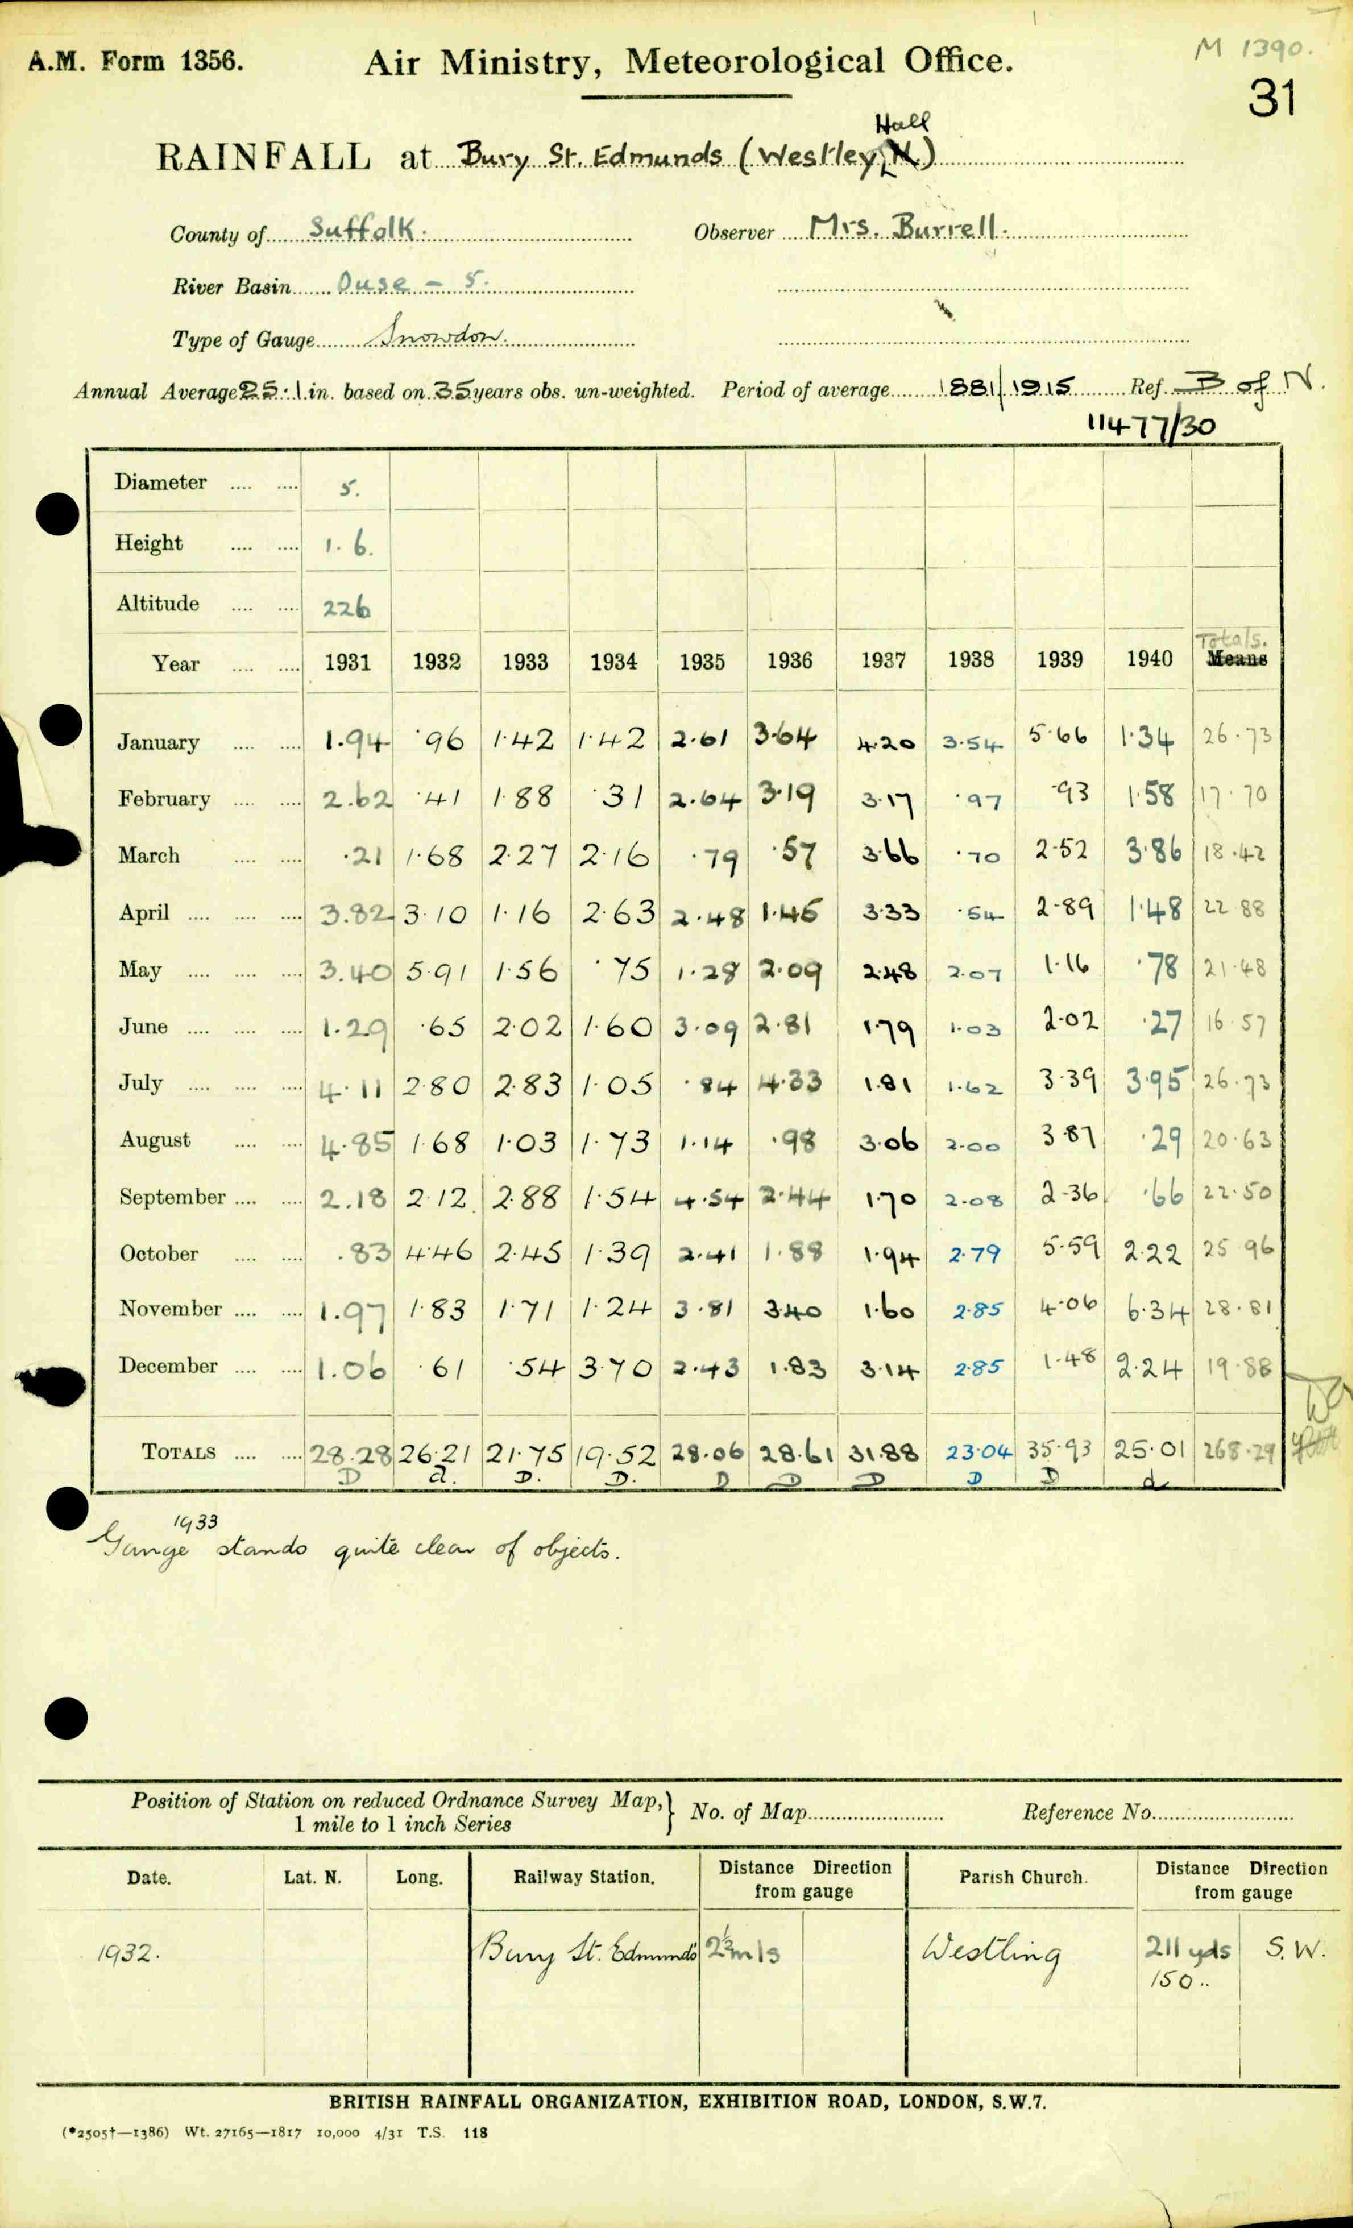 M 1390.
A.M. Form 1356. Air Ministry, Meteorological Office.
31
Hall
RAINFALL at Bury St. Edmunds (Westley, H)
County of Suffolk. Observer Mrs. Burrell.
River Basin Ouse - 5.
Type of Gauge Snowdon.
Annual Average 25.1 in. based on 35 years obs. un-weighted. Period of average 1881/1915 Ref. B of N.
11477/30
Diameter .... .... 5.
Height .... .... 1.6.
Altitude .... .... 226
Totals.
Year .... .... 1931 1932 1933 1934 1935 1936 1937 1938 1939 1940 Means
January .... .... 1.94 .96 1.42 1.42 2.61 3.64 4.20 3.54 5.66 1.34 26.73
February .... .... 2.62 .41 1.88 .31 2.64 3.19 3.17 .97 .93 1.58 17.70
March .... .... .21 1.68 2.27 2.16 .79 .57 3.66 .70 2.52 3.86 18.42
April .... .... .... 3.82 3.10 1.16 2.63 2.48 1.45 3.33 .54 2.89 1.48 22.88
May .... .... .... 3.40 5.91 1.56 .75 1.28 2.09 2.48 2.07 1.16 .78 21.48
June .... .... .... 1.29 .65 2.02 1.60 3.09 2.81 1.79 1.03 2.02 .27 16.57
July .... .... .... 4.11 2.80 2.83 1.05 .84 4.33 1.81 1.62 3.39 3.95 26.73
August .... .... 4.85 1.68 1.03 1.73 1.14 .98 3.06 2.00 3.87 .29 20.63
September .... .... 2.18 2.12 2.88 1.54 4.54 2.44 1.70 2.08 2.36 .66 22.50
October .... .... .83 4.46 2.45 1.39 2.41 1.88 1.94 2.79 5.59 2.22 25.96
November .... .... 1.97 1.83 1.71 1.24 3.81 3.40 1.60 2.85 4.06 6.34 28.81
December .... .... 1.06 .61 .54 3.70 2.43 1.83 3.14 2.85 1.48 2.24 19.88
TOTALS .... .... 28.28 26.21 21.75 19.52 28.06 28.61 31.88 23.04 35.93 25.01 268.29
D d. D. D. D D D D D d
1933
Gauge stands quite clear of objects.
Position of Station on reduced Ordnance Survey Map, } No. of Map Reference No.
1 mile to 1 inch Series
Date. Lat. N. Long. Railway Station. Distance Direction from gauge Parish Church. Distance Direction from gauge
1932. Bury St. Edmunds 2½ mls Westling 211 yds S.W.
150 ..
BRITISH RAINFALL ORGANIZATION, EXHIBITION ROAD, LONDON, S.W.7.
(*2505†—1386) Wt. 27165—1817 10,000 4/31 T.S. 118